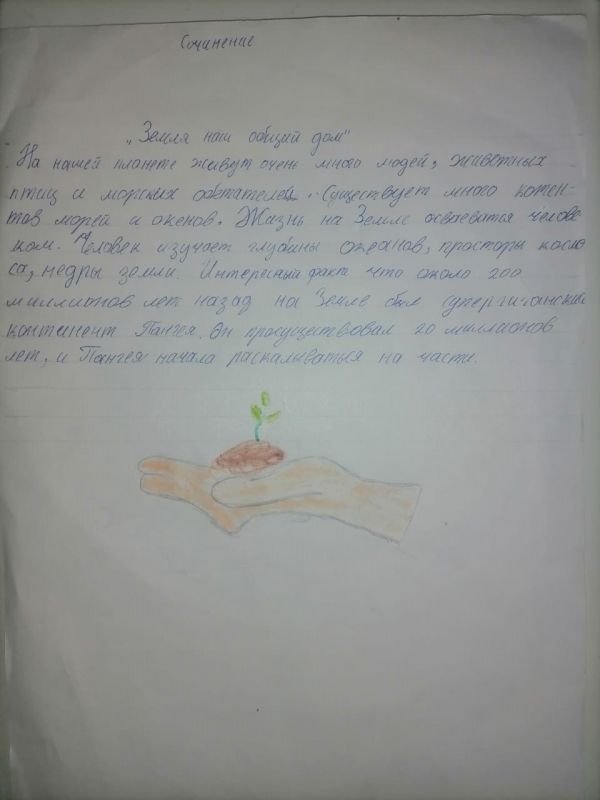 Сочинение
„Земля наш общий дом"
На нашей планете живут очень много людей, животных
птиц и морских обитателей. Существует много контен-
тов морей и окенов. Жизнь на Земле осваеватся челове
ком. Человек изучает глубины океанов, просторы космо
са, недры земли. Интересный факт что около 200
миллионов лет назад на Земле был супергиганский
континент Пангея. Он просуществовал 20 миллионов
лет, и Пангея начала раскалываться на части.